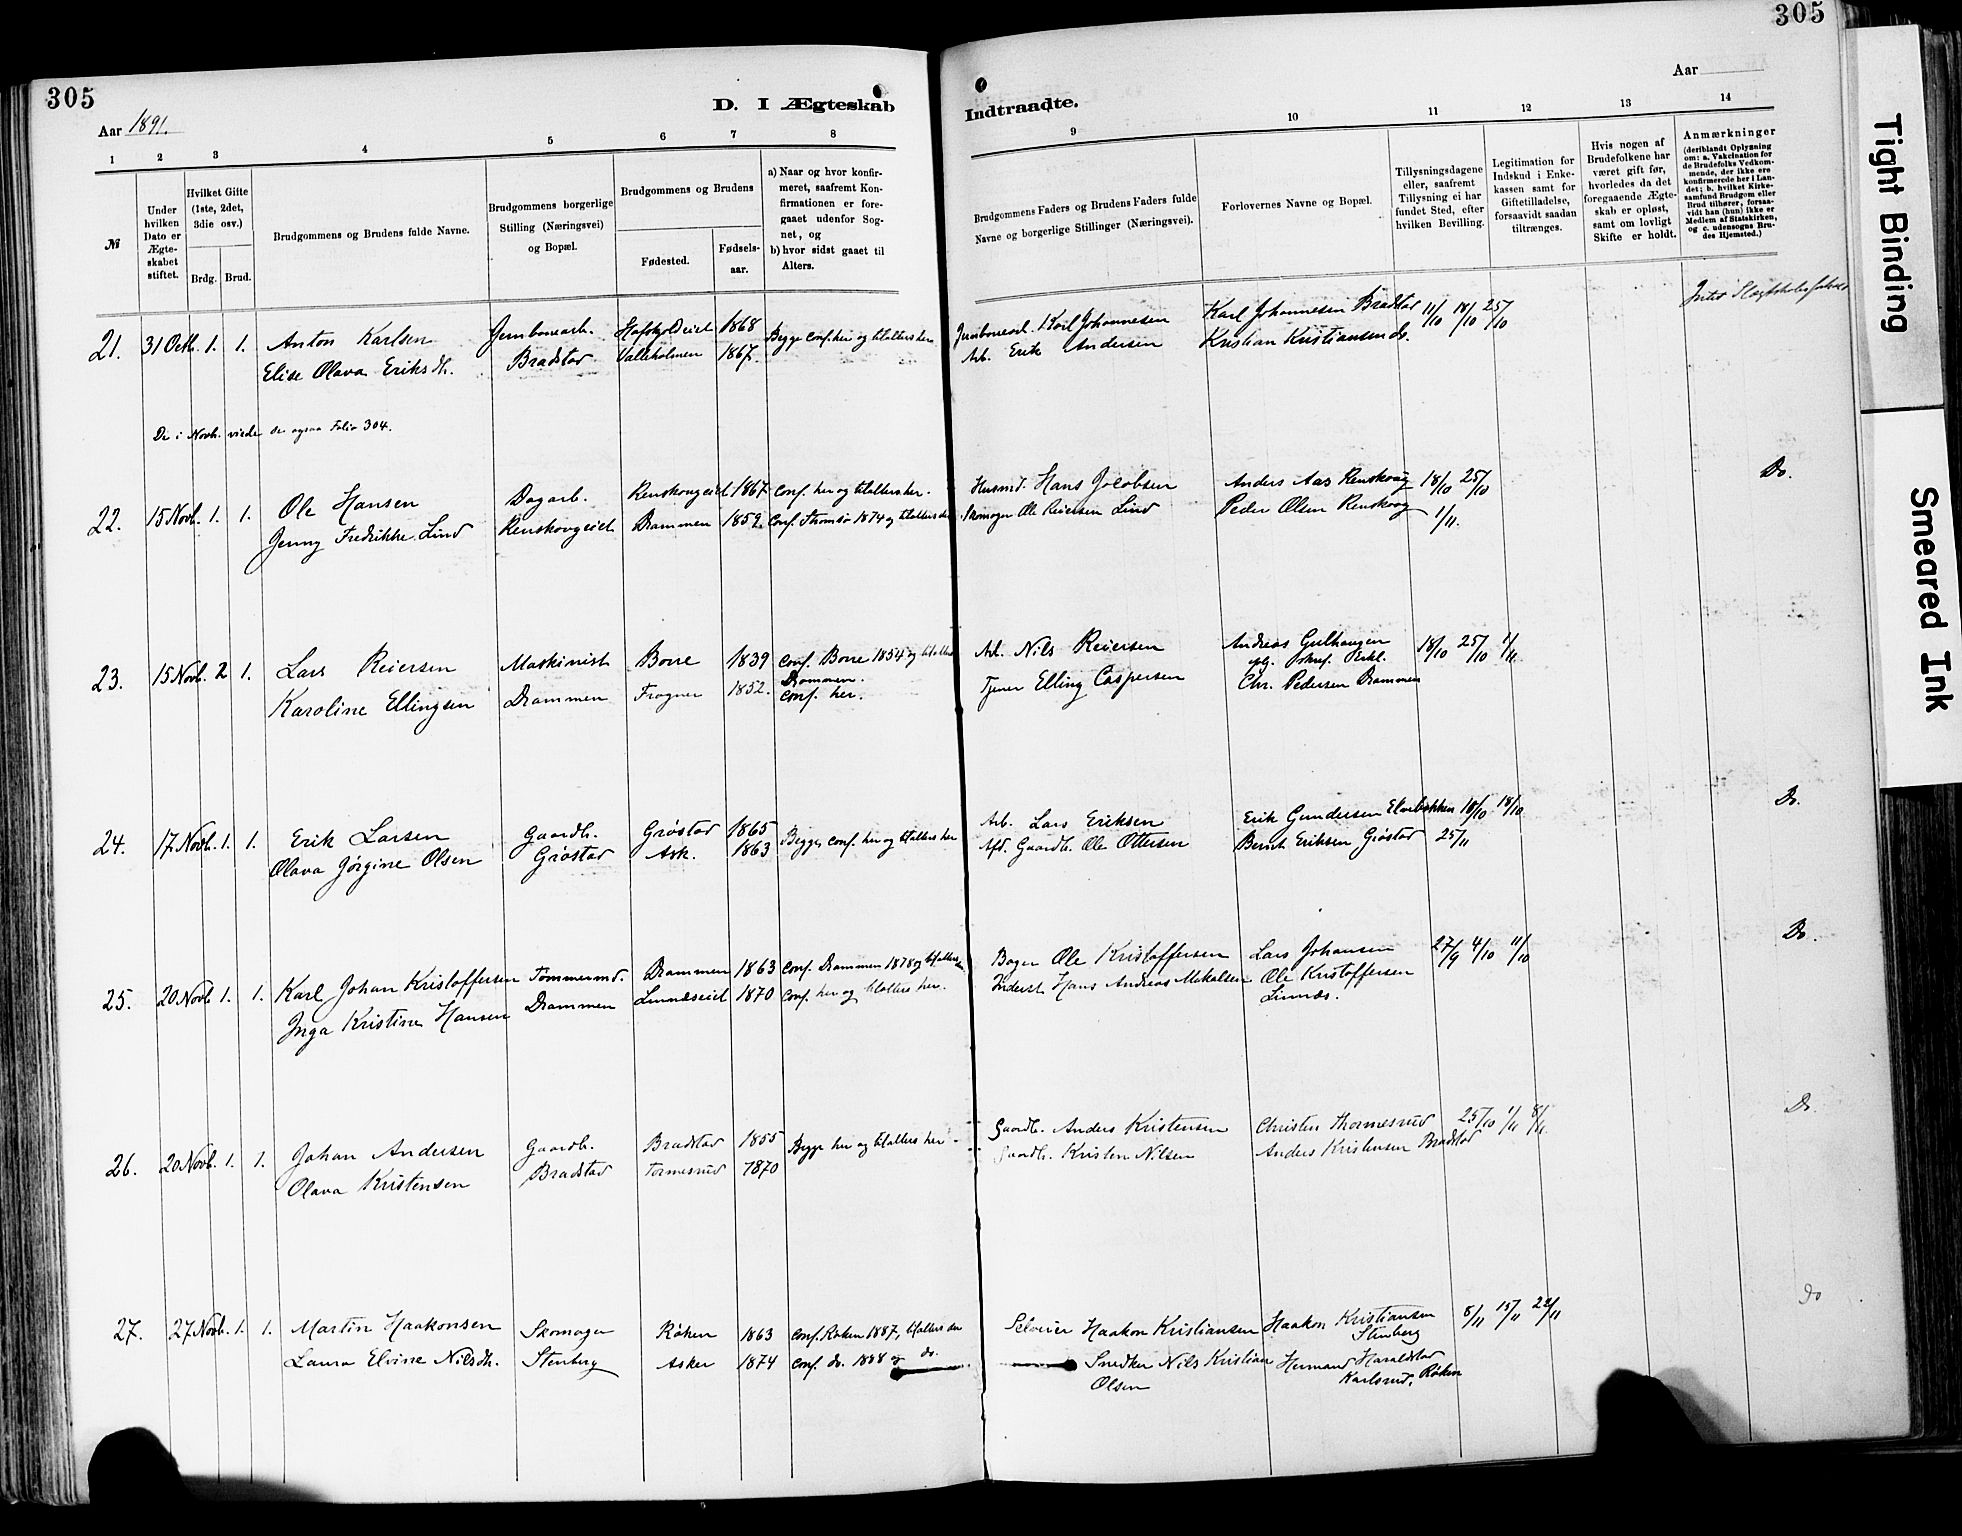 305
Aar 1891.
D. I Ægteskab
1 2 3 4 5 6 7 8
№
Under hvilken Dato er Ægteskabet stiftet.
Hvilket Gifte (1ste, 2det, 3die osv.)
Brdg. Brud.
Brudgommens og Brudens fulde Navne.
Brudgommens borgerlige Stilling (Næringsvei) og Bopæl.
Brudgommens og Brudens
Fødested.
Fødsels-aar.
a) Naar og hvor konfirmeret, saafremt Konfirmationen er foregaaet udenfor Sognet, og
b) hvor sidst gaaet til Alters.
305
Aar
Indtraadte.
9 10 11 12 13 14
Brudgommens Faders og Brudens Faders fulde Navne og borgerlige Stillinger (Næringsvei).
Forlovernes Navne og Bopæl.
Tillysningsdagene eller, saafremt Tillysning ei har fundet Sted, efter hvilken Bevilling.
Legitimation for Indskud i Enkekassen samt for Giftetilladelse, forsaavidt saadan tiltrænges.
Hvis nogen af Brudefolkene har været gift før, hvorledes da det foregaaende Ægteskab er opløst, samt om lovligt Skifte er holdt.
Anmærkninger
(deriblandt Oplysning om: a. Vakcination for de Brudefolks Vedkommende, der ikke ere konfirmerede her i Landet; b. hvilket Kirkesamfund Brudgom eller Brud tilhører, forsaavidt han (hun) ikke er Medlem af Statskirken, og c. udensogns Brudes Hjemsted.)
21. 31 Octb. 1. 1. Anton Karlsen Jernbanearb. 1868 Begge conf. her og tilalters her Karl Johannesen Karl Johannesen Bradstad 11/10 18/10 25/10
Elise Olava Eriksdt. Bradstad Valleholmen 1867. Arb. Erik Andersen Kristian Kristiansen do.
De i Novb. viede se ogsaa Folio 304.
22. 15 Novb. 1. 1. Ole Hansen Dagarb. Renskougeiet 1867 conf. her og tilalters her. Husmd. Hans Jacobsen Anders Aas Renskoug 18/10 25/10 Do.
Jenny Fredrikke Lind Renskougeiet Drammen 1859. conf. Tromsø 1874 og tilalters der Skomager Ole Reiersen Lind Peder Olsen Renskoug 1/11.
23. 15 Novb. 2 1. Lars Reiersen Maskinist Borre 1839 conf. Borre 1854 og tilalters Drammen. Arb. Nils Reiersen Andreas Gulhaugen 18/10 25/10 1/11
Karoline Ellingsen Drammen Frogner 1852. conf. her. Tjener Elling Caspersen Chr. Pedersen Drammen
24. 17 Novb. 1. 1. Erik Larsen Gaardb. Grøstad 1865 Begge conf. her og tilalters her Arb. Lars Eriksen Erik Gundersen Elvebakken 18/10 18/10 Do.
Olava Jørgine Olsen Grøstad Ask. 1863 Gaardb. Ole Ottersen Bernt Eriksen Grøstad 25/11
25. 20 Novb. 1. 1. Karl Johan Kristoffersen Tømmermd. Drammen 1863 conf. Drammen 1878 og tilalters Bager Ole Kristoffersen Lars Johansen 27/9 4/10 11/10 Do.
Inga Kristine Hansen Drammen Linnæseiet 1870 conf. her og tilalters her. Inderst Hans Andreas Mikalsen Ole Kristoffersen
Linnæs.
26. 20 Novb. 1. 1. Johan Andersen Gaardb. Bradstad 1855 Begge her og tilalters her. Gaardb. Anders Kristensen Christen Thormesrud 25/10 1/11 8/11. Do
Olava Kristensen Bradstad Tormesrud 1870 Gaardb. Kristen Nilsen Anders Kristensen Bradstad
27. 27 Novb. 1. 1. Martin Haakonsen Skomager Røken 1863 conf. Røken 1887, tilalters der Selveier Haakon Kristiansen Haakon Kristiansen Stenberg 8/11 15/11 22/11 do
Laura Elvine Nilsdt. Stenberg Asker 1874 conf. do. 1888 og do. Snedker Nils Kristian Olsen Herman Haraldstad Karlsrud, Røken
Tight Binding
Smeared Ink